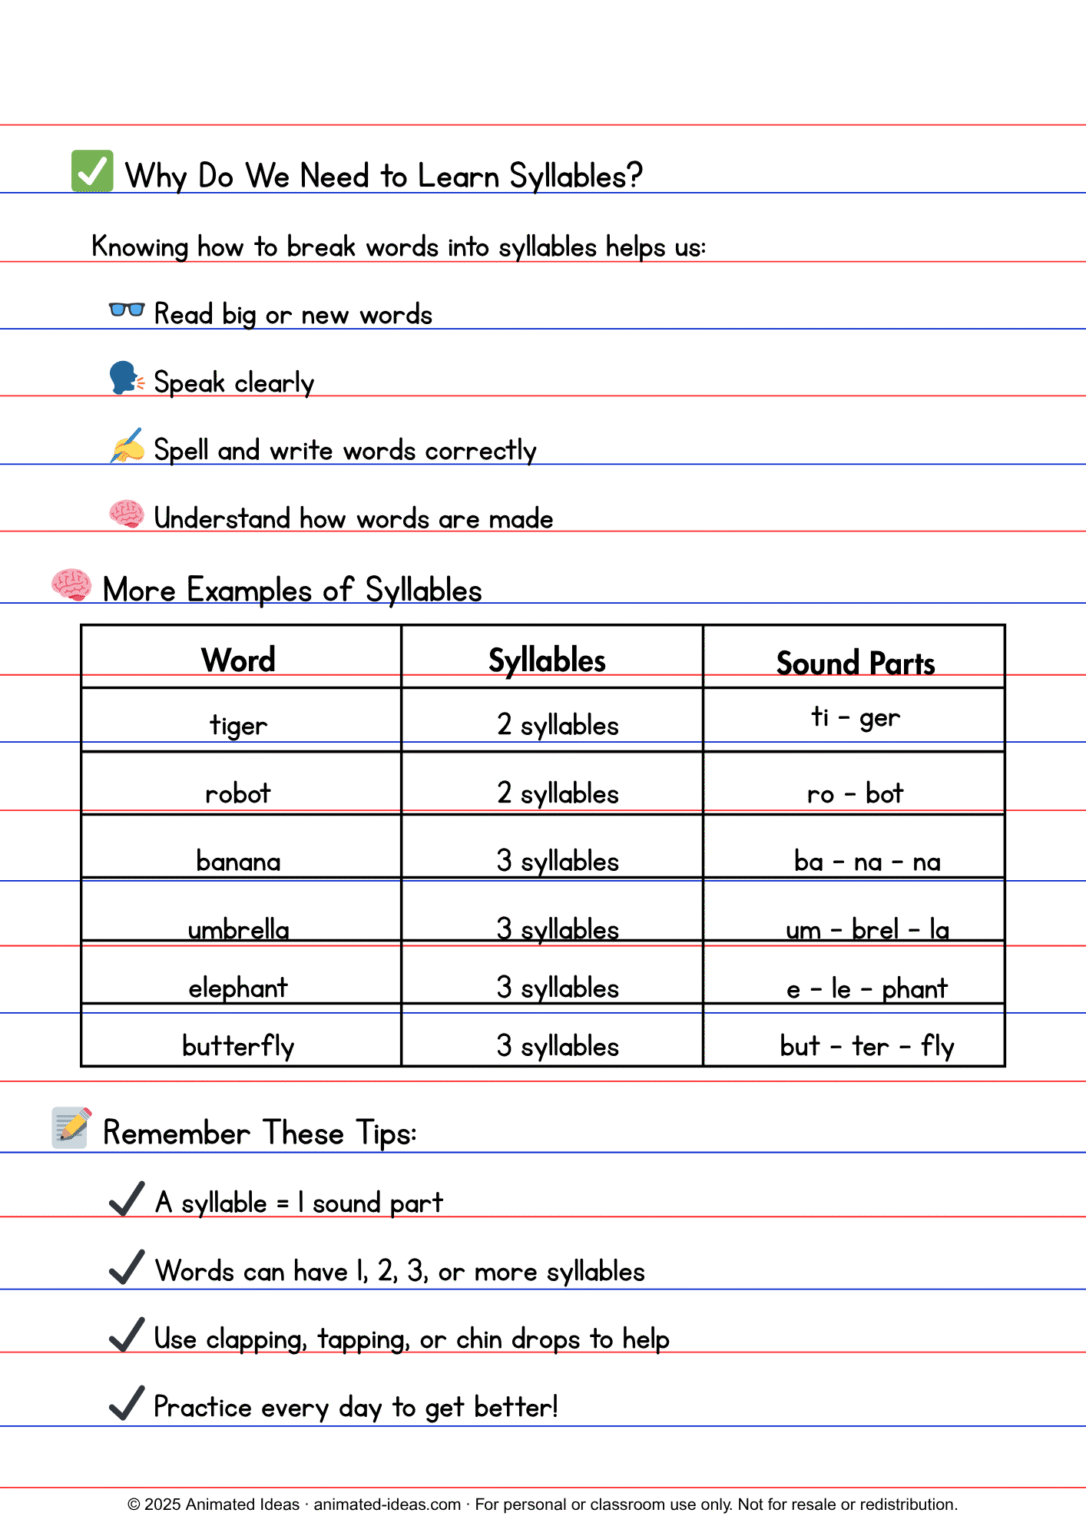 Why Do We Need to Learn Syllables?
Knowing how to break words into syllables helps us:
Read big or new words
Speak clearly
Spell and write words correctly
Understand how words are made
More Examples of Syllables
Word Syllables Sound Parts
tiger 2 syllables ti - ger
robot 2 syllables ro - bot
banana 3 syllables ba - na - na
umbrella 3 syllables um - brel - la
elephant 3 syllables e - le - phant
butterfly 3 syllables but - ter - fly
Remember These Tips:
A syllable = 1 sound part
Words can have 1, 2, 3, or more syllables
Use clapping, tapping, or chin drops to help
Practice every day to get better!
© 2025 Animated Ideas · animated-ideas.com · For personal or classroom use only. Not for resale or redistribution.